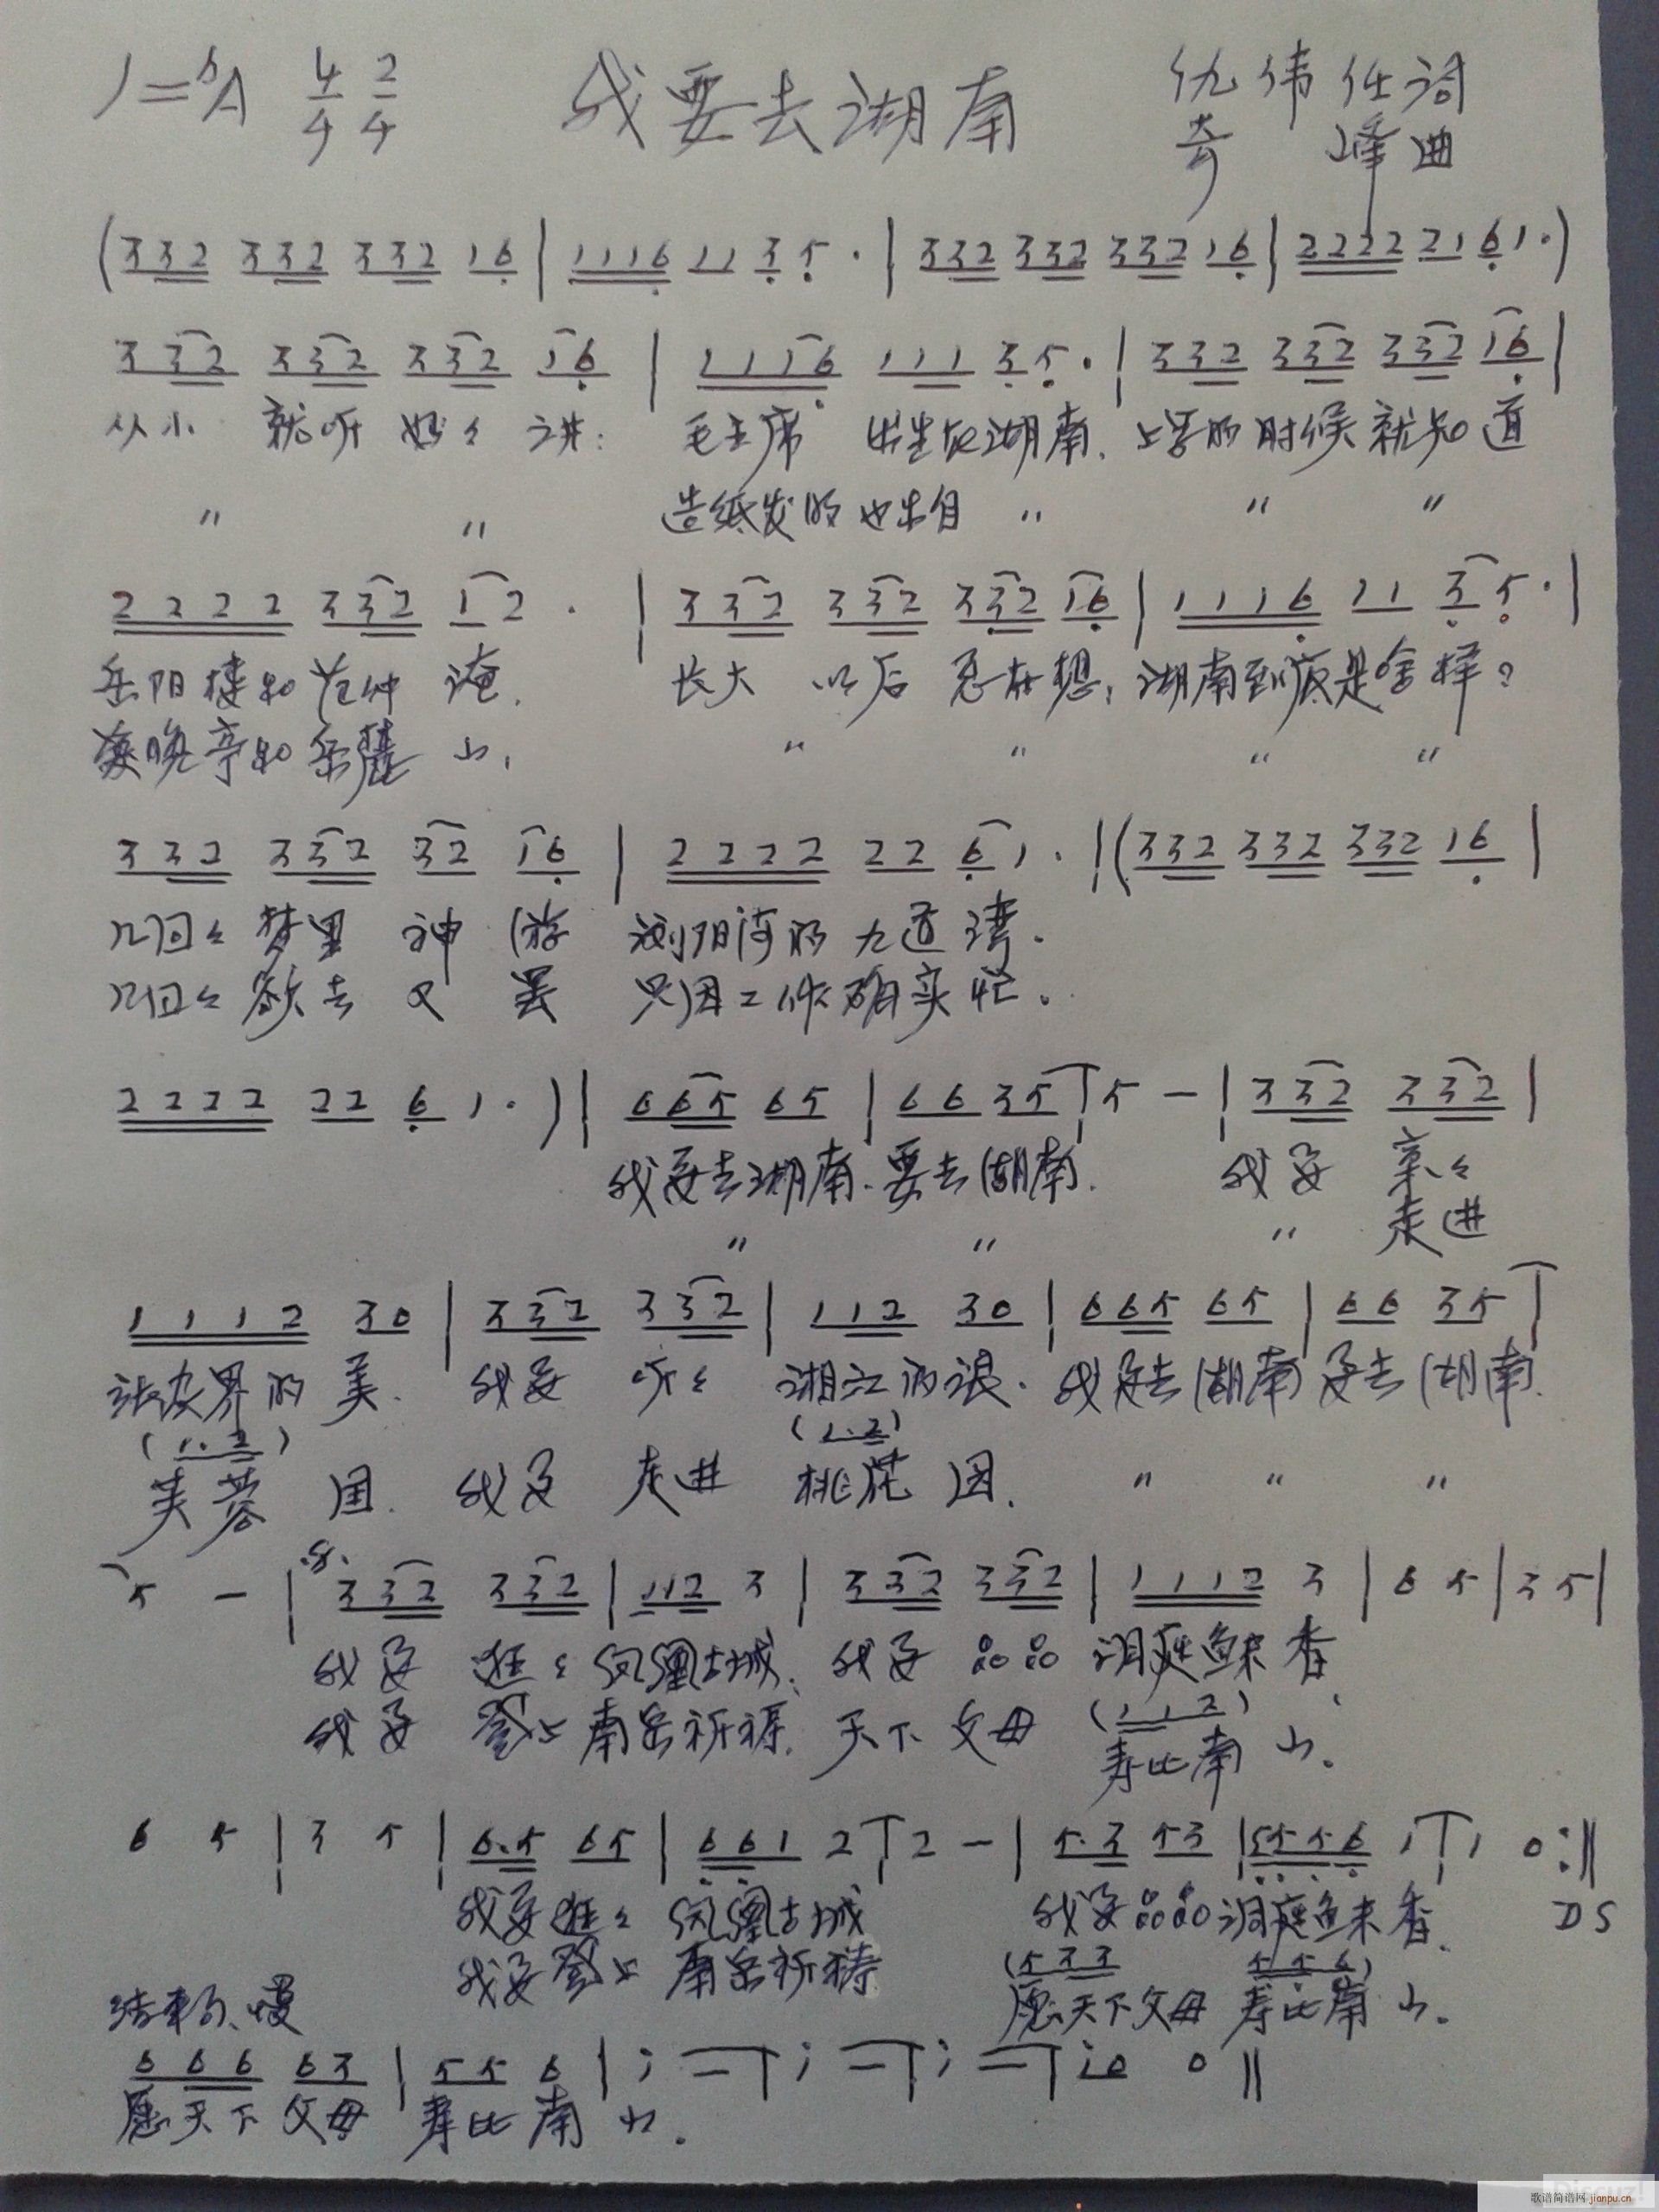 1=ᵇA 4/4 2/4 我要去湖南 仇伟任词
奇 峰曲
(332 332 332 16 | 1116 11 35· | 332 332 332 16 | 2222 21 61·)
332 332 332 16 | 1116 111 35· | 332 332 332 16 |
从小 就听妈々讲: 毛主席 出生在湖南. 上学的时候就知道
〃 〃 造纸发明也出自 〃 〃 〃
2222 332 12· | 332 332 332 16 | 1116 11 35· |
岳阳楼和范仲淹. 长大 以后 总在想, 湖南到底是啥样?
爱晚亭和岳麓山, 〃 〃 〃 〃
332 332 32 16 | 2222 22 61· | (332 332 332 16 |
几回々梦里 神游 浏阳河的九道湾.
几回々欲去 又 罢 只因工作确实忙.
2222 22 61·) | 665 65 | 66 35 | 5 — | 332 332 |
我要去湖南.要去湖南. 我要 亲々
〃 〃 〃 走进
1112 30 | 332 332 | 112 30 | 665 65 | 66 35 |
张家界的 美. 我要 听々 湘江的浪. 我要去湖南 要去湖南.
(1·2) (1·2)
芙蓉 国. 我要 走进 桃花 园. 〃 〃 〃
5 — | 332 332 | 112 3 | 332 332 | 1112 3 | 6 5 | 3 5 |
我要 逛々 凤凰古城, 我要 品品 洞庭鱼米香,
我要 登上 南岳祈祷. 天下 父母 (112)
寿比南 山.
6 5 | 3 5 | 6·5 65 | 661 2 | 2 — | 5·3 53 | 5556 1 | 1 0 :‖
我要逛々 凤凰古城 我要品品洞庭鱼米香. DS
我要登上 南岳祈祷 (533 556)
结束句、慢 愿天下父母 寿比南 山.
666 63 | 55 6 | i — | i — | i — | i0 0 ‖
愿天下 父母 寿比 南 山.
歌谱简谱网 jianpu.cn